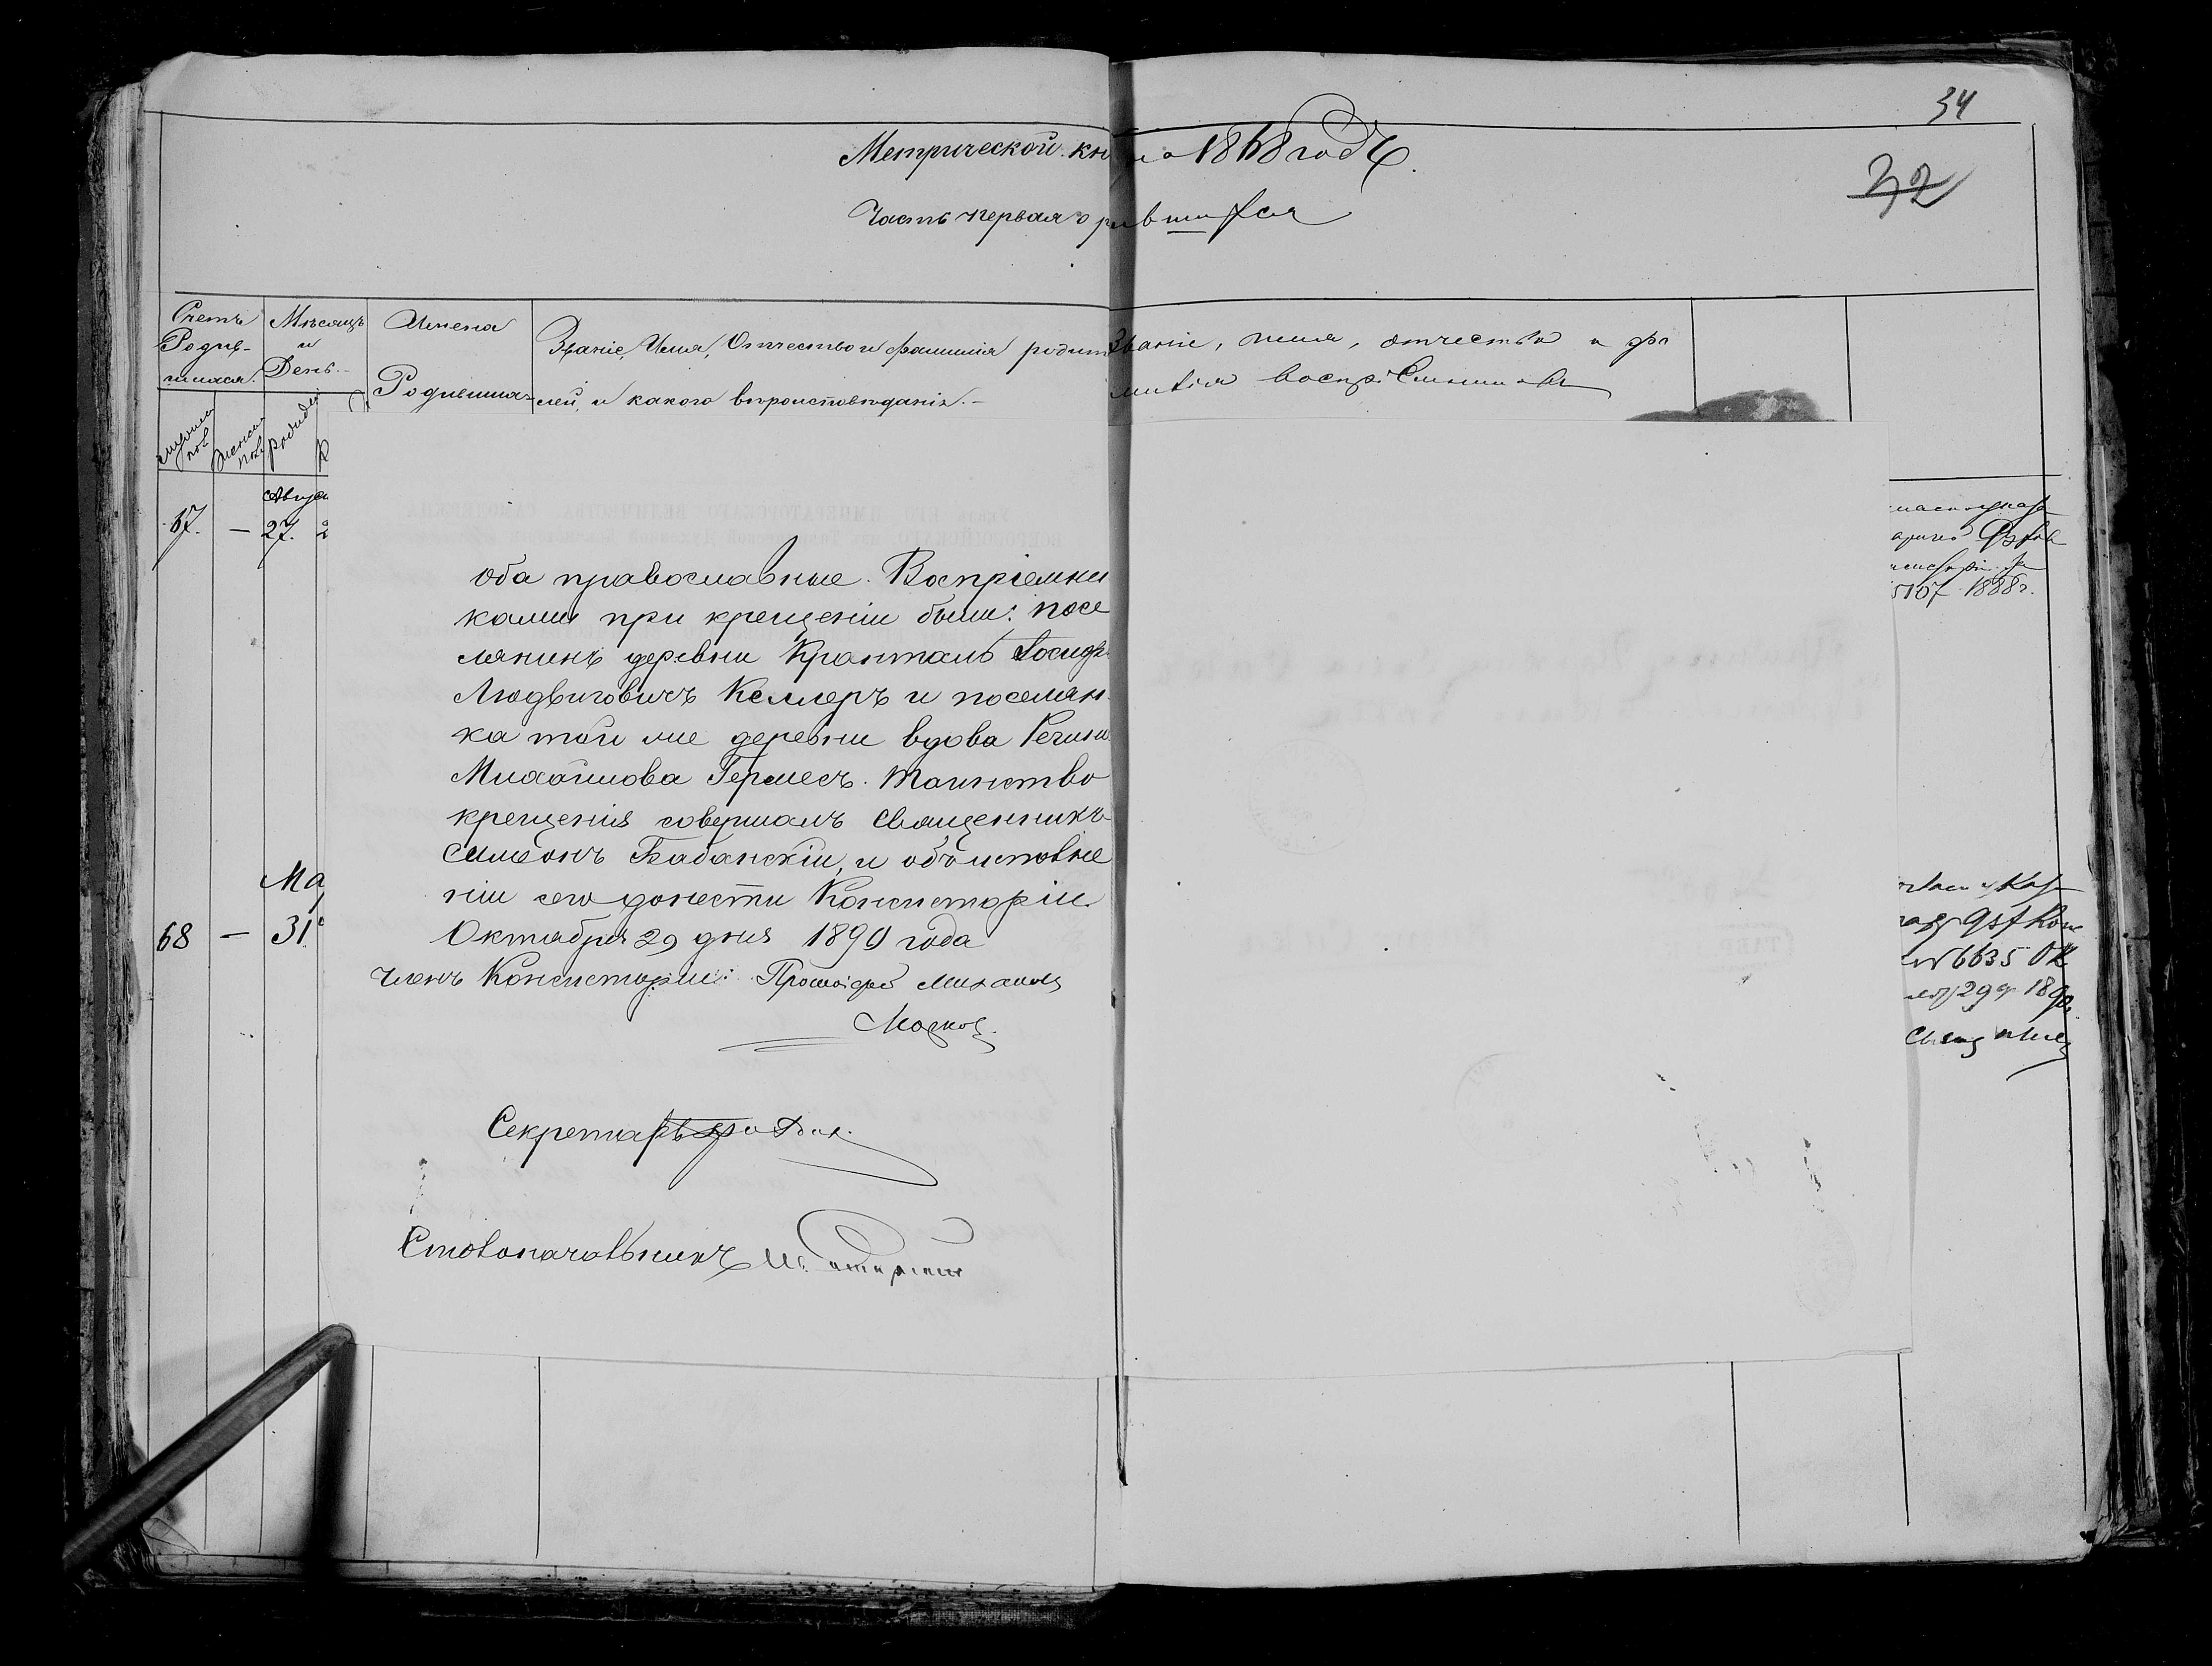 34
32
Метрической кн на 1868 годъ.
Часть первая о вшихся
Счетъ Родив-шихся.
Мѣсяцъ и День.
Имена Родивших
Званіе, Имя, Отчество и фамилія родит
лей, и какого вѣроисповѣданія.-
Званіе, имя, отчество и фа
милія воспріемниковъ
мужеска пол
женска пола
родился
Авгус
67. — 27. 2
оба православные. Воспріемни
ками при крещеніи были: посе
лянинъ деревни Кронталь Іосифъ
Людвиговичъ Келлеръ и поселян
ка той же деревни вдова
Михайлова Гермесъ. Таинство
крещенія совершалъ Священникъ
Симеонъ Бабанскій, и объ исполне
ніи сего донести Консисторіи.
Октября 29 дня 1890 года
Членъ Консисторіи: Протоіерей Михаилъ
Секретарь
Столоначальникъ
Ма
68 — 31
5107 1888 г.
№ 6635
29 1890